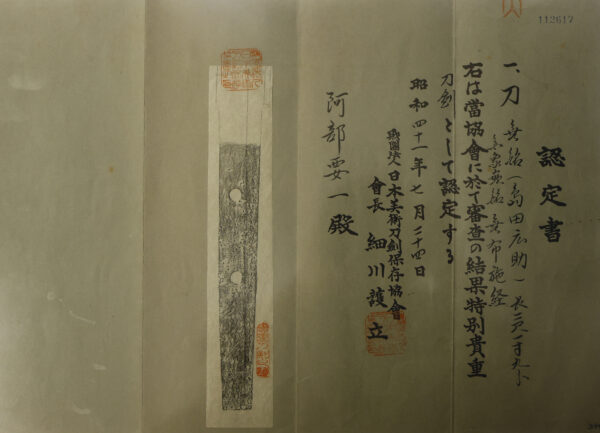 112617
認定書
一、刀 無銘(島田広助) 長
金象嵌銘 無布施経
右は當協會に於て審査の結果特別貴重
刀劍として認定する
昭和四十一年七月二十四日
財團法人日本美術刀劍保存協會
會長 細川護立
阿部要一殿